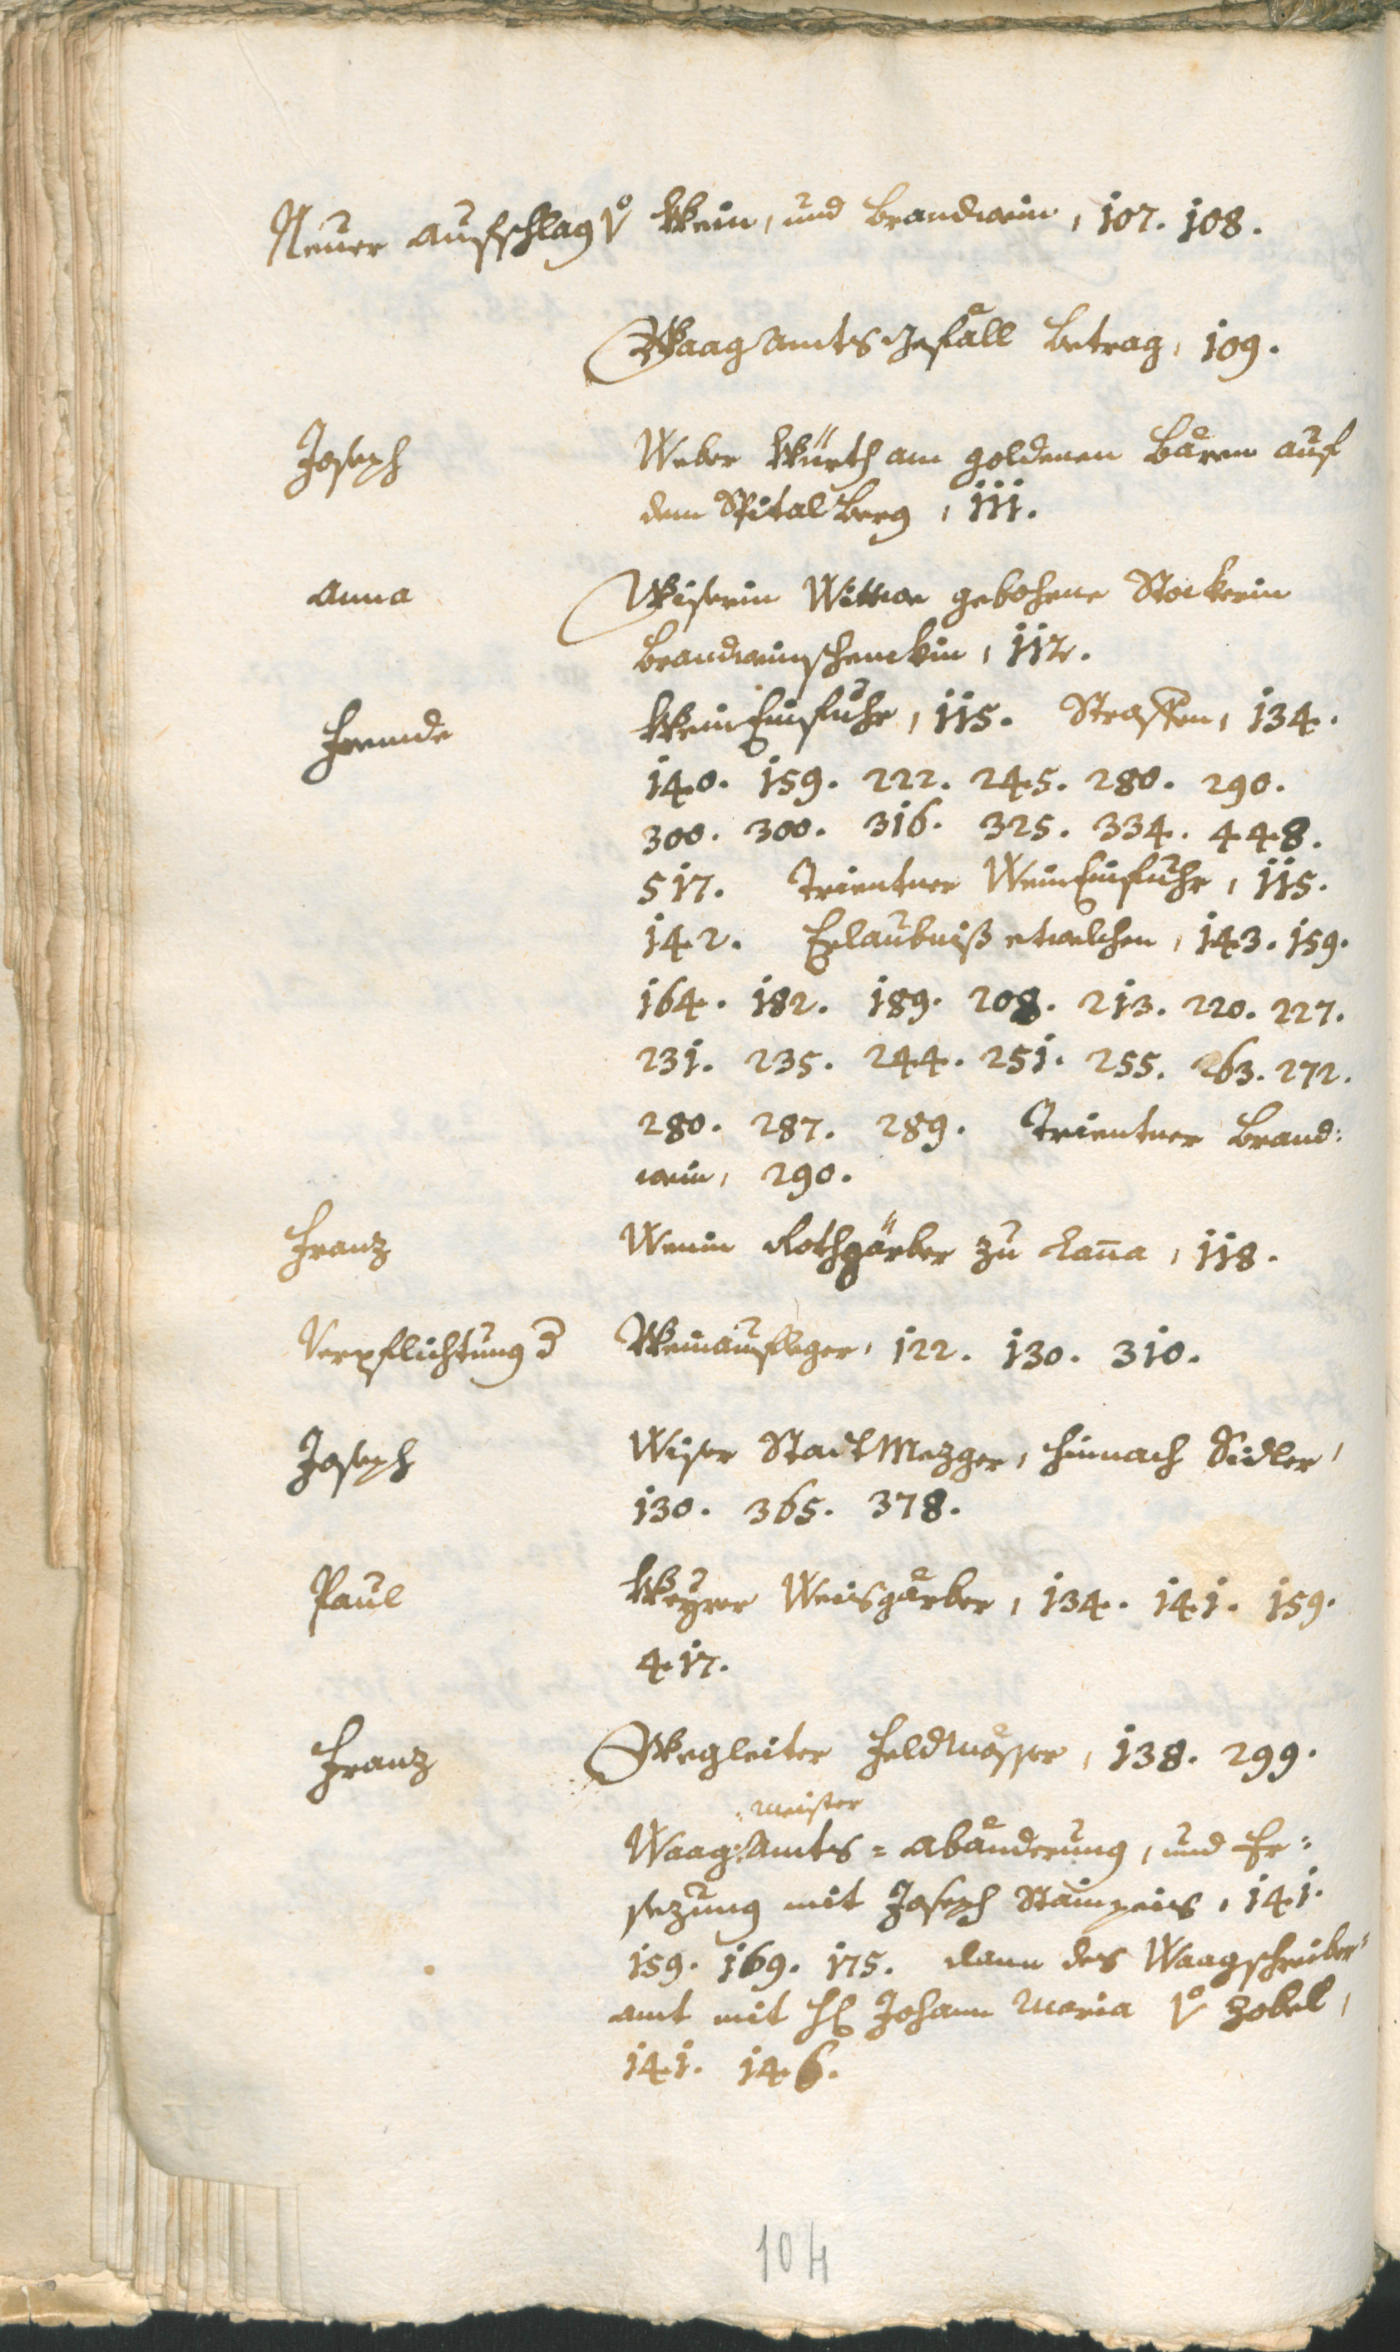 Neuer Aufschlag v Wein, und Brandwein, 107. 108.
WaagAmtsGefäll Betrag, 109.
Joseph Weber Würth am goldenen Bären auf
dem Spitalberg, 111.
Anna Wiserin Wittwe gebohrne Stockerin
Brandweinschenckin, 112.
Fremde WeinEinfuhr, 115. Straffen, 134.
140. 159. 222. 245. 280. 290.
300. 300. 316. 325. 334. 448.
517. Trientner WeinEinfuhr, 115.
142. Erlaubniß etwelchen, 143. 159.
164. 182. 189. 208. 213. 220. 227.
231. 235. 244. 251. 255. 263. 272.
280. 287. 289. Trientner Brand:
wein, 290.
Franz Wenin Rothgärber zu Lana, 118.
Verpflichtung d Weinaufleger, 122. 130. 310.
Joseph Wiser StadtMezger, hinnach Sidler,
130. 365. 378.
Paul Weyrer Weisgärber, 134. 141. 159.
417.
Franz Wegleiter Feldmässer, 138. 299.
meister
Waag:Amts=Abänderung, und Er=
sezung mit Joseph Stainpeis, 141.
159. 169. 175. dann des Waagschreiber=
amt mit H Johann Maria v Zobel,
141. 146.
104